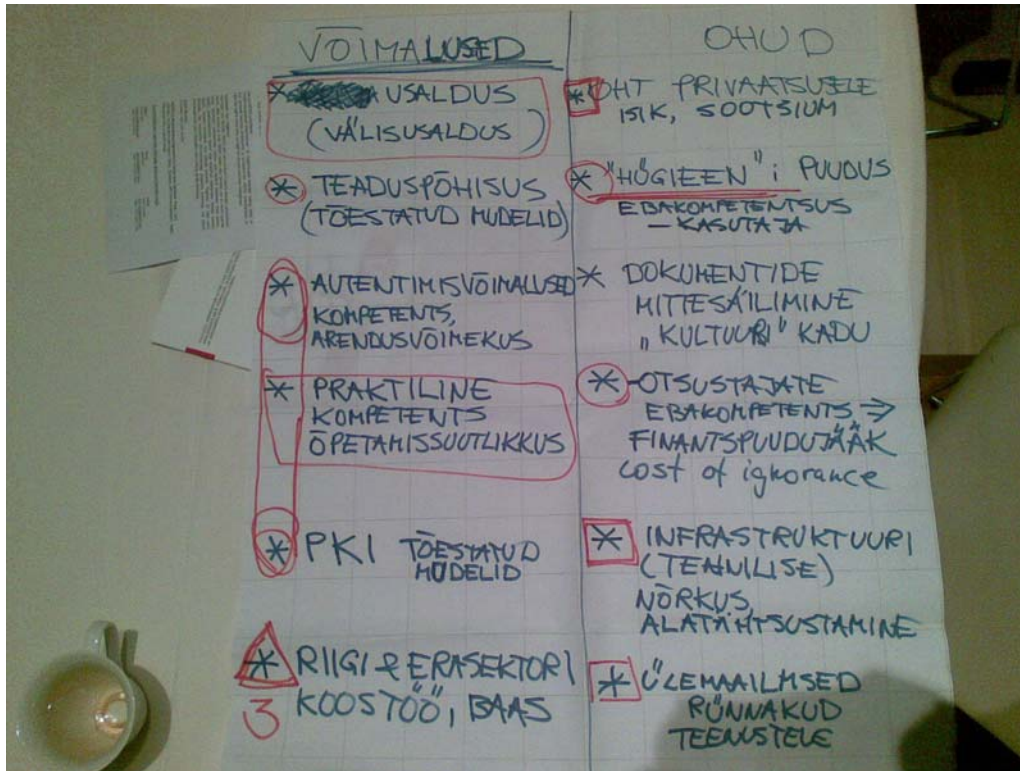 VÕIMALUSED
* USALDUS
(VÄLISUSALDUS)
* TEADUSPÕHISUS
(TÕESTATUD MUDELID)
* AUTENTIMISVÕIMALUSED
KOMPETENTS,
ARENDUSVÕIMEKUS
* PRAKTILINE
KOMPETENTS
ÕPETAMISSUUTLIKKUS
* PKI TÕESTATUD
MUDELID
* RIIGI & ERASEKTORI
3 KOOSTÖÖ, BAAS
OHUD
* OHT PRIVAATSUSELE
ISIK, SOOTSIUM
* "HÜGIEEN" i PUUDUS
EBAKOMPETENTSUS
— KASUTAJA
* DOKUMENTIDE
MITTESÄILIMINE
„KULTUURI" KADU
* OTSUSTAJATE
EBAKOMPETENTS ⇒
FINANTSPUUDUJÄÄK
cost of ignorance
* INFRASTRUKTUURI
(TEHNILISE)
NÕRKUS,
ALATÄHTSUSTAMINE
* ÜLEMAAILMSED
RÜNNAKUD
TEENUSTELE